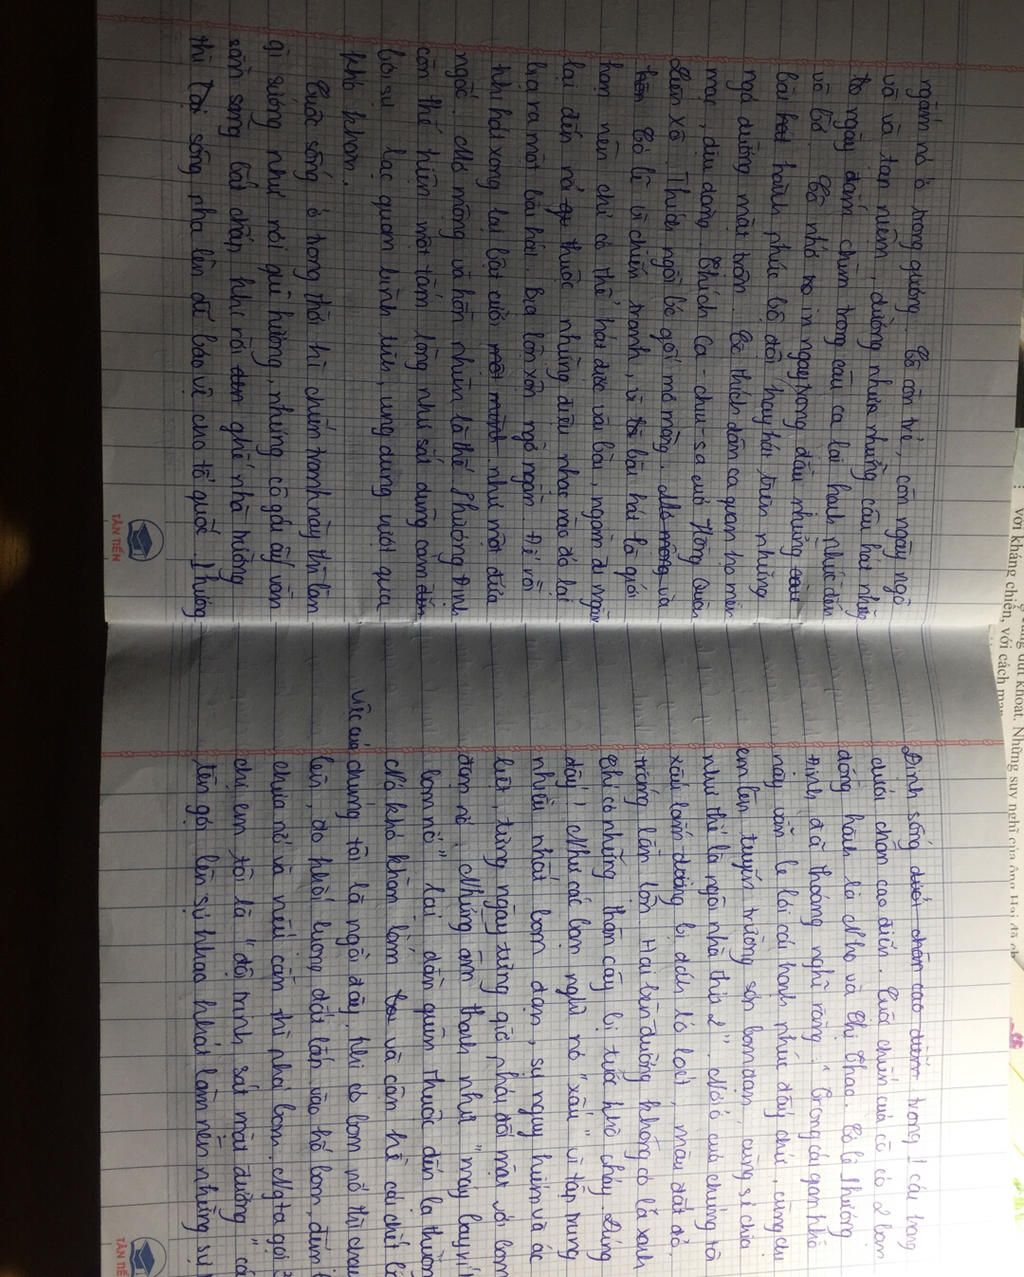 ngắm nó ở trong gương. Cô còn trẻ, còn ngây ngô
và và tan niềm, dường như những câu hát nhịp
to ngày đắm chìm trong câu ca lại hạnh phúc đến
vô bờ. Cô nhớ in ngay trong đầu những
bài hát hành khúc bộ đội hay hát trên những
ngả đường mặt trận. Cô thích dân ca quan họ mềm
mại, dịu dàng. Thích Ca-chiu-sa của Hồng Quân
Liên Xô. Thích ngồi bó gối mơ màng. và
Có lẽ vì chiến tranh, vì bài hát là giới
hạn nên chỉ có thể hát được vài bài, ngoài ra ngân
lại đến nó thuộc những điệu nhạc nào đó lại
bịa ra một bài hát. Bịa lộn xộn ngớ ngẩn. Để rồi
khi hát xong lại bật cười như một đứa
ngốc. Mơ mộng và hồn nhiên là thế Phương Định
còn thể hiện một tấm lòng như sắt dũng cảm
bởi sự lạc quan bình tĩnh, ung dung vượt qua
khó khăn.
Cuộc sống ở trong thời kì chiến tranh này thì làm
gì sướng như nơi quê hương, nhưng cô gái ấy vẫn
sẵn sàng bất chấp khi rời ghế nhà trường
thì lại xông pha lên để bảo vệ cho tổ quốc. Phương
TÂN TIẾN
Định sống dưới chân cao điểm trong 1 cái hang
dưới chân cao điểm. Cuộc chiến của cô có 2 bạn
đồng hành là Nho và chị Thao. Có lẽ Phương
Định đã thoáng nghĩ rằng "trong cái gian khổ
này vẫn le lói cái hạnh phúc đấy chứ, cùng chị
em lên tuyến trường sơn bom đạn, cùng sẻ chia
như thế là ngôi nhà thứ 2". Nơi ở của chúng tôi
xấu lắm đường bị đánh lở loét, màu đất đỏ,
trắng lẫn lộn. Hai bên đường không có lá xanh
Chỉ có những thân cây bị tước khô cháy. Đúng
đấy! Như các bạn nghĩ nó "xấu" vì tập trung
nhiều nhất bom đạn, sự nguy hiểm và ác
liệt, từng ngày từng giờ phải đối mặt với bom
đạn nổ. Những âm thanh như "máy bay rít
bom nổ" lại dần quen thuộc đến lạ thường
Nó khó khăn lắm và cận kề cái chết là
việc của chúng tôi là ngồi đây, khi có bom nổ thì chạy
lên, đo khối lượng đất lấp vào hố bom, đếm
chưa nổ và nếu cần thì phá bom. Người ta gọi
chị em tôi là "đội trinh sát mặt đường" cái
tên gọi lên sự khao khát làm nên những sự
TÂN TIẾN
với kháng chiến, với cách mạng
dứt khoát. Những suy nghĩ của ông Hai đã